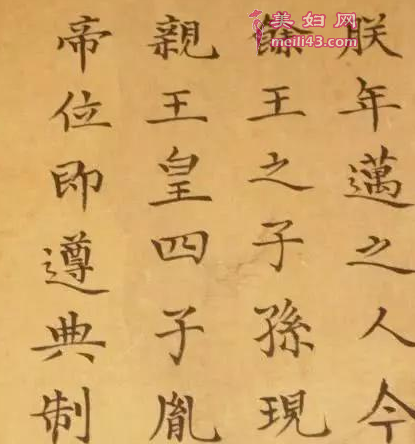 美妇网
meili43.com
朕年邁之人今
王之子孫現
親王皇四子胤
帝位即遵典制